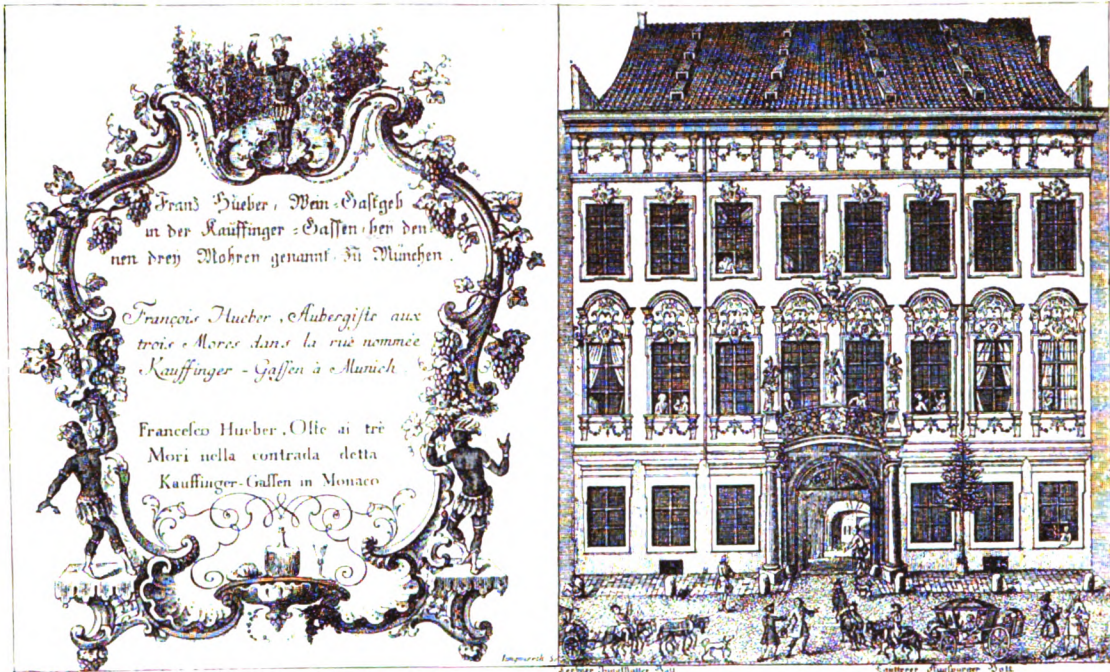 Franz Hueber, Wein-Gastgeb
in der Kaüffinger-Gassen, beŋ den
nen dreÿ Mohren genannt. Zü München.
François Hueber, Aubergiste aux
trois Mores dans la rüe nommée
Kauffinger-Gassen à Munich.
Francesco Hueber, Oste ai tre
Mori nella contrada detta
Kauffinger-Gassen in Monaco
Jungwierth
Augspurger Bott